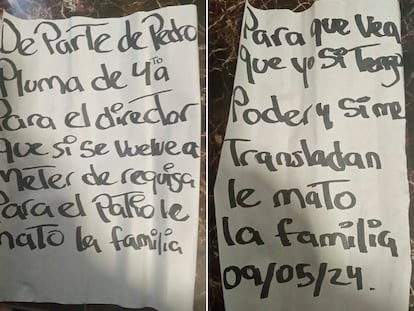 De Parte de Pedro
Pluma de 4to a
Para el director
que si se vuelve a
Meter de requisa
Para el Patio le
mato la familia
Para que Vea
que yo si Tengo
Poder y si me
Transladan
le mato
la familia
09/05/24.